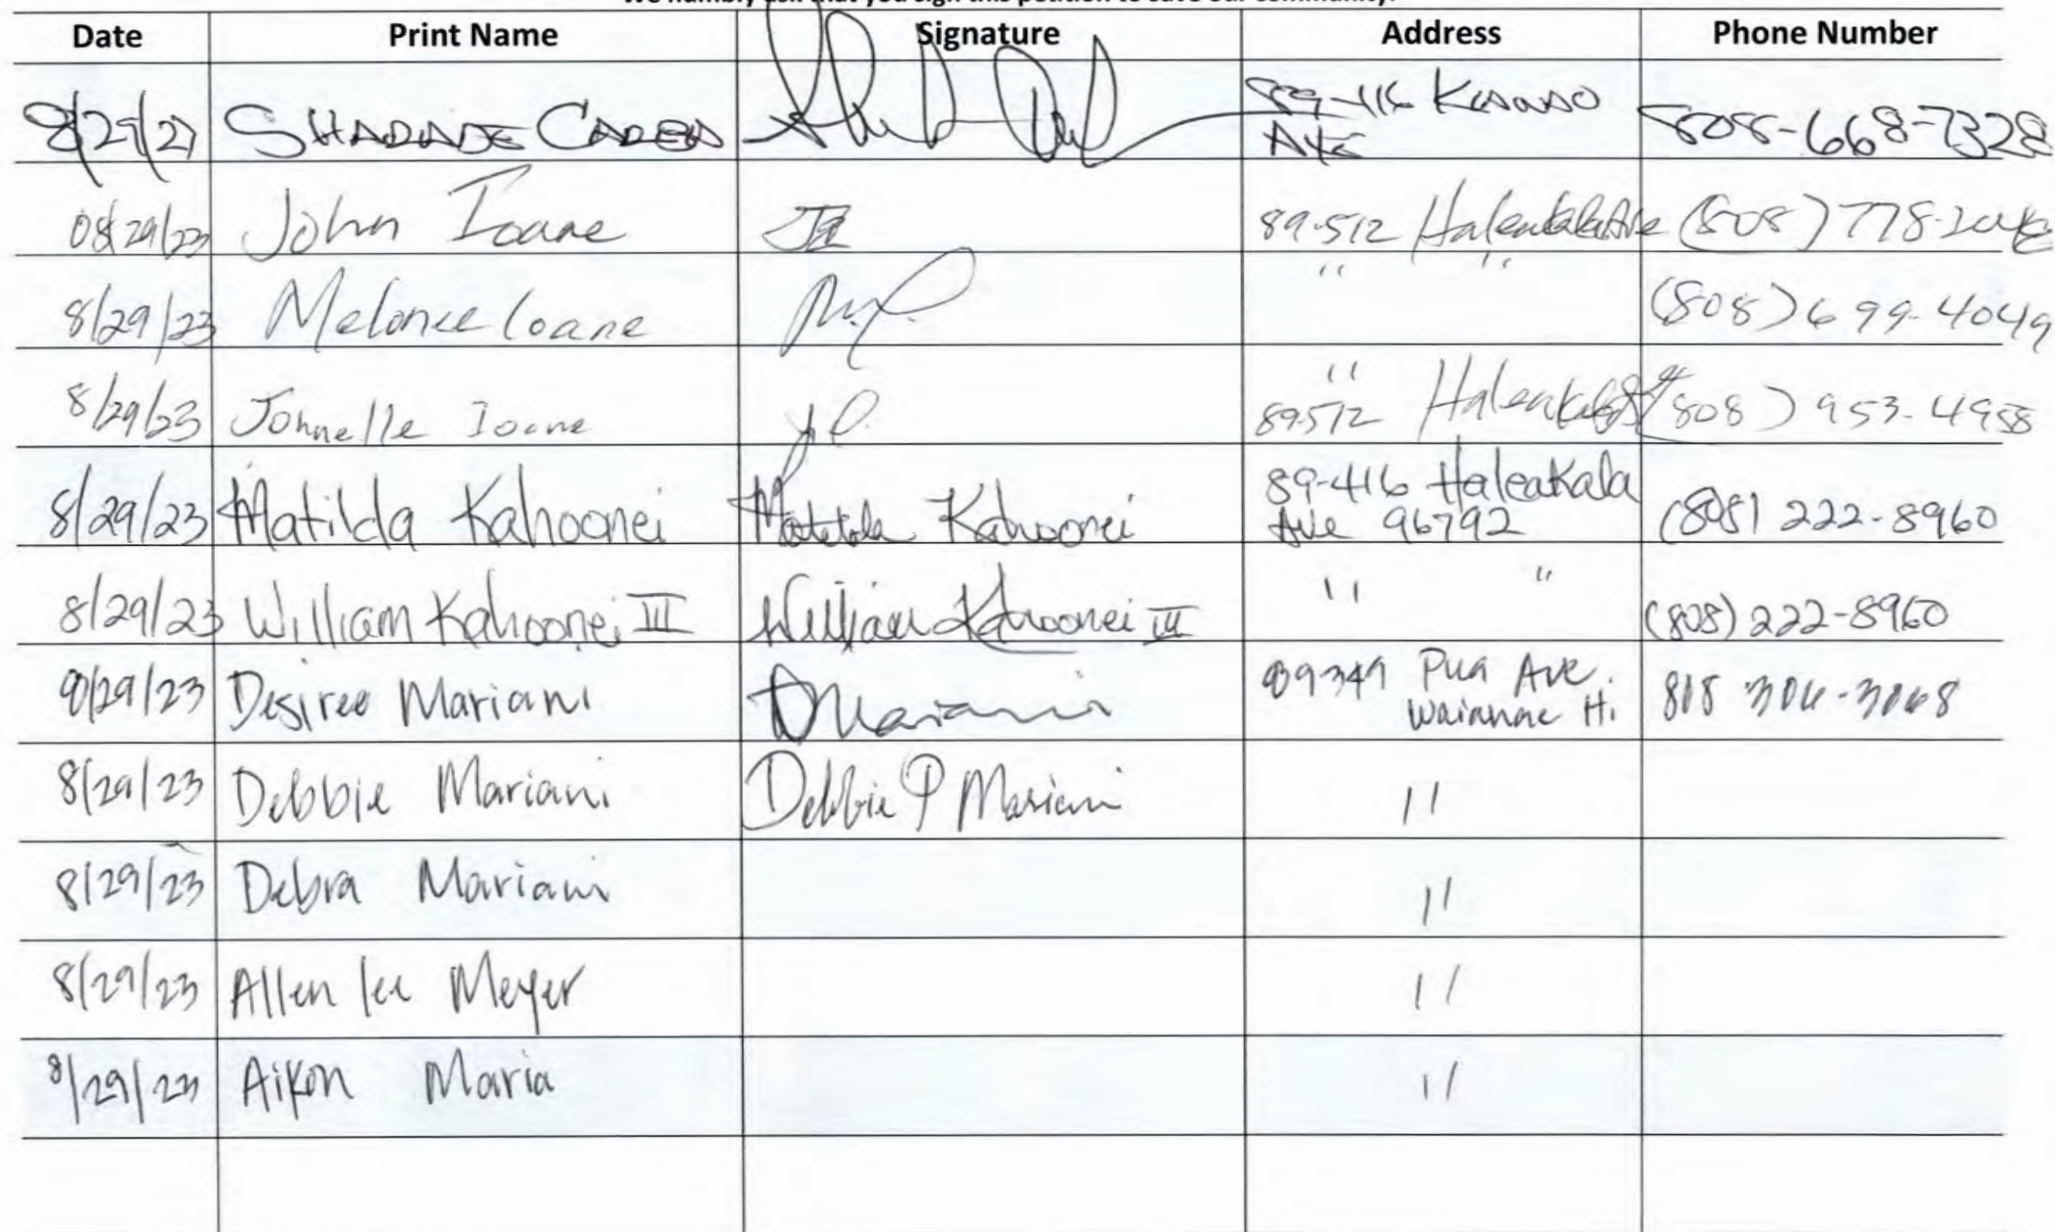 We humbly ask that you sign this petition to save our community.
Date Print Name Signature Address Phone Number
89-416
8/29/27 808-668-7328
08/29/23 John Ioane JI 89-512 Haleakala Ave (808) 778-
8/29/23 Melonee Ioane " " (808) 699-4049
" 
8/29/23 Johnelle Ioane 89-512 Haleakala (808) 953-4958
89-416 Haleakala
8/29/23 Matilda Kahoonei Matilda Kahoonei Ave 96792 (808) 222-8960
8/29/23 William Kahoonei III William Kahoonei III " " (808) 222-8960
89-349 Pua Ave.
8/29/23 Desiree Mariani DMariani Waianae Hi. 808
8/29/23 Debbie Mariani Debbie P Mariani "
8/29/23 Debra Mariani "
8/29/23 Allen lee Meyer "
8/29/23 Aikon Maria "